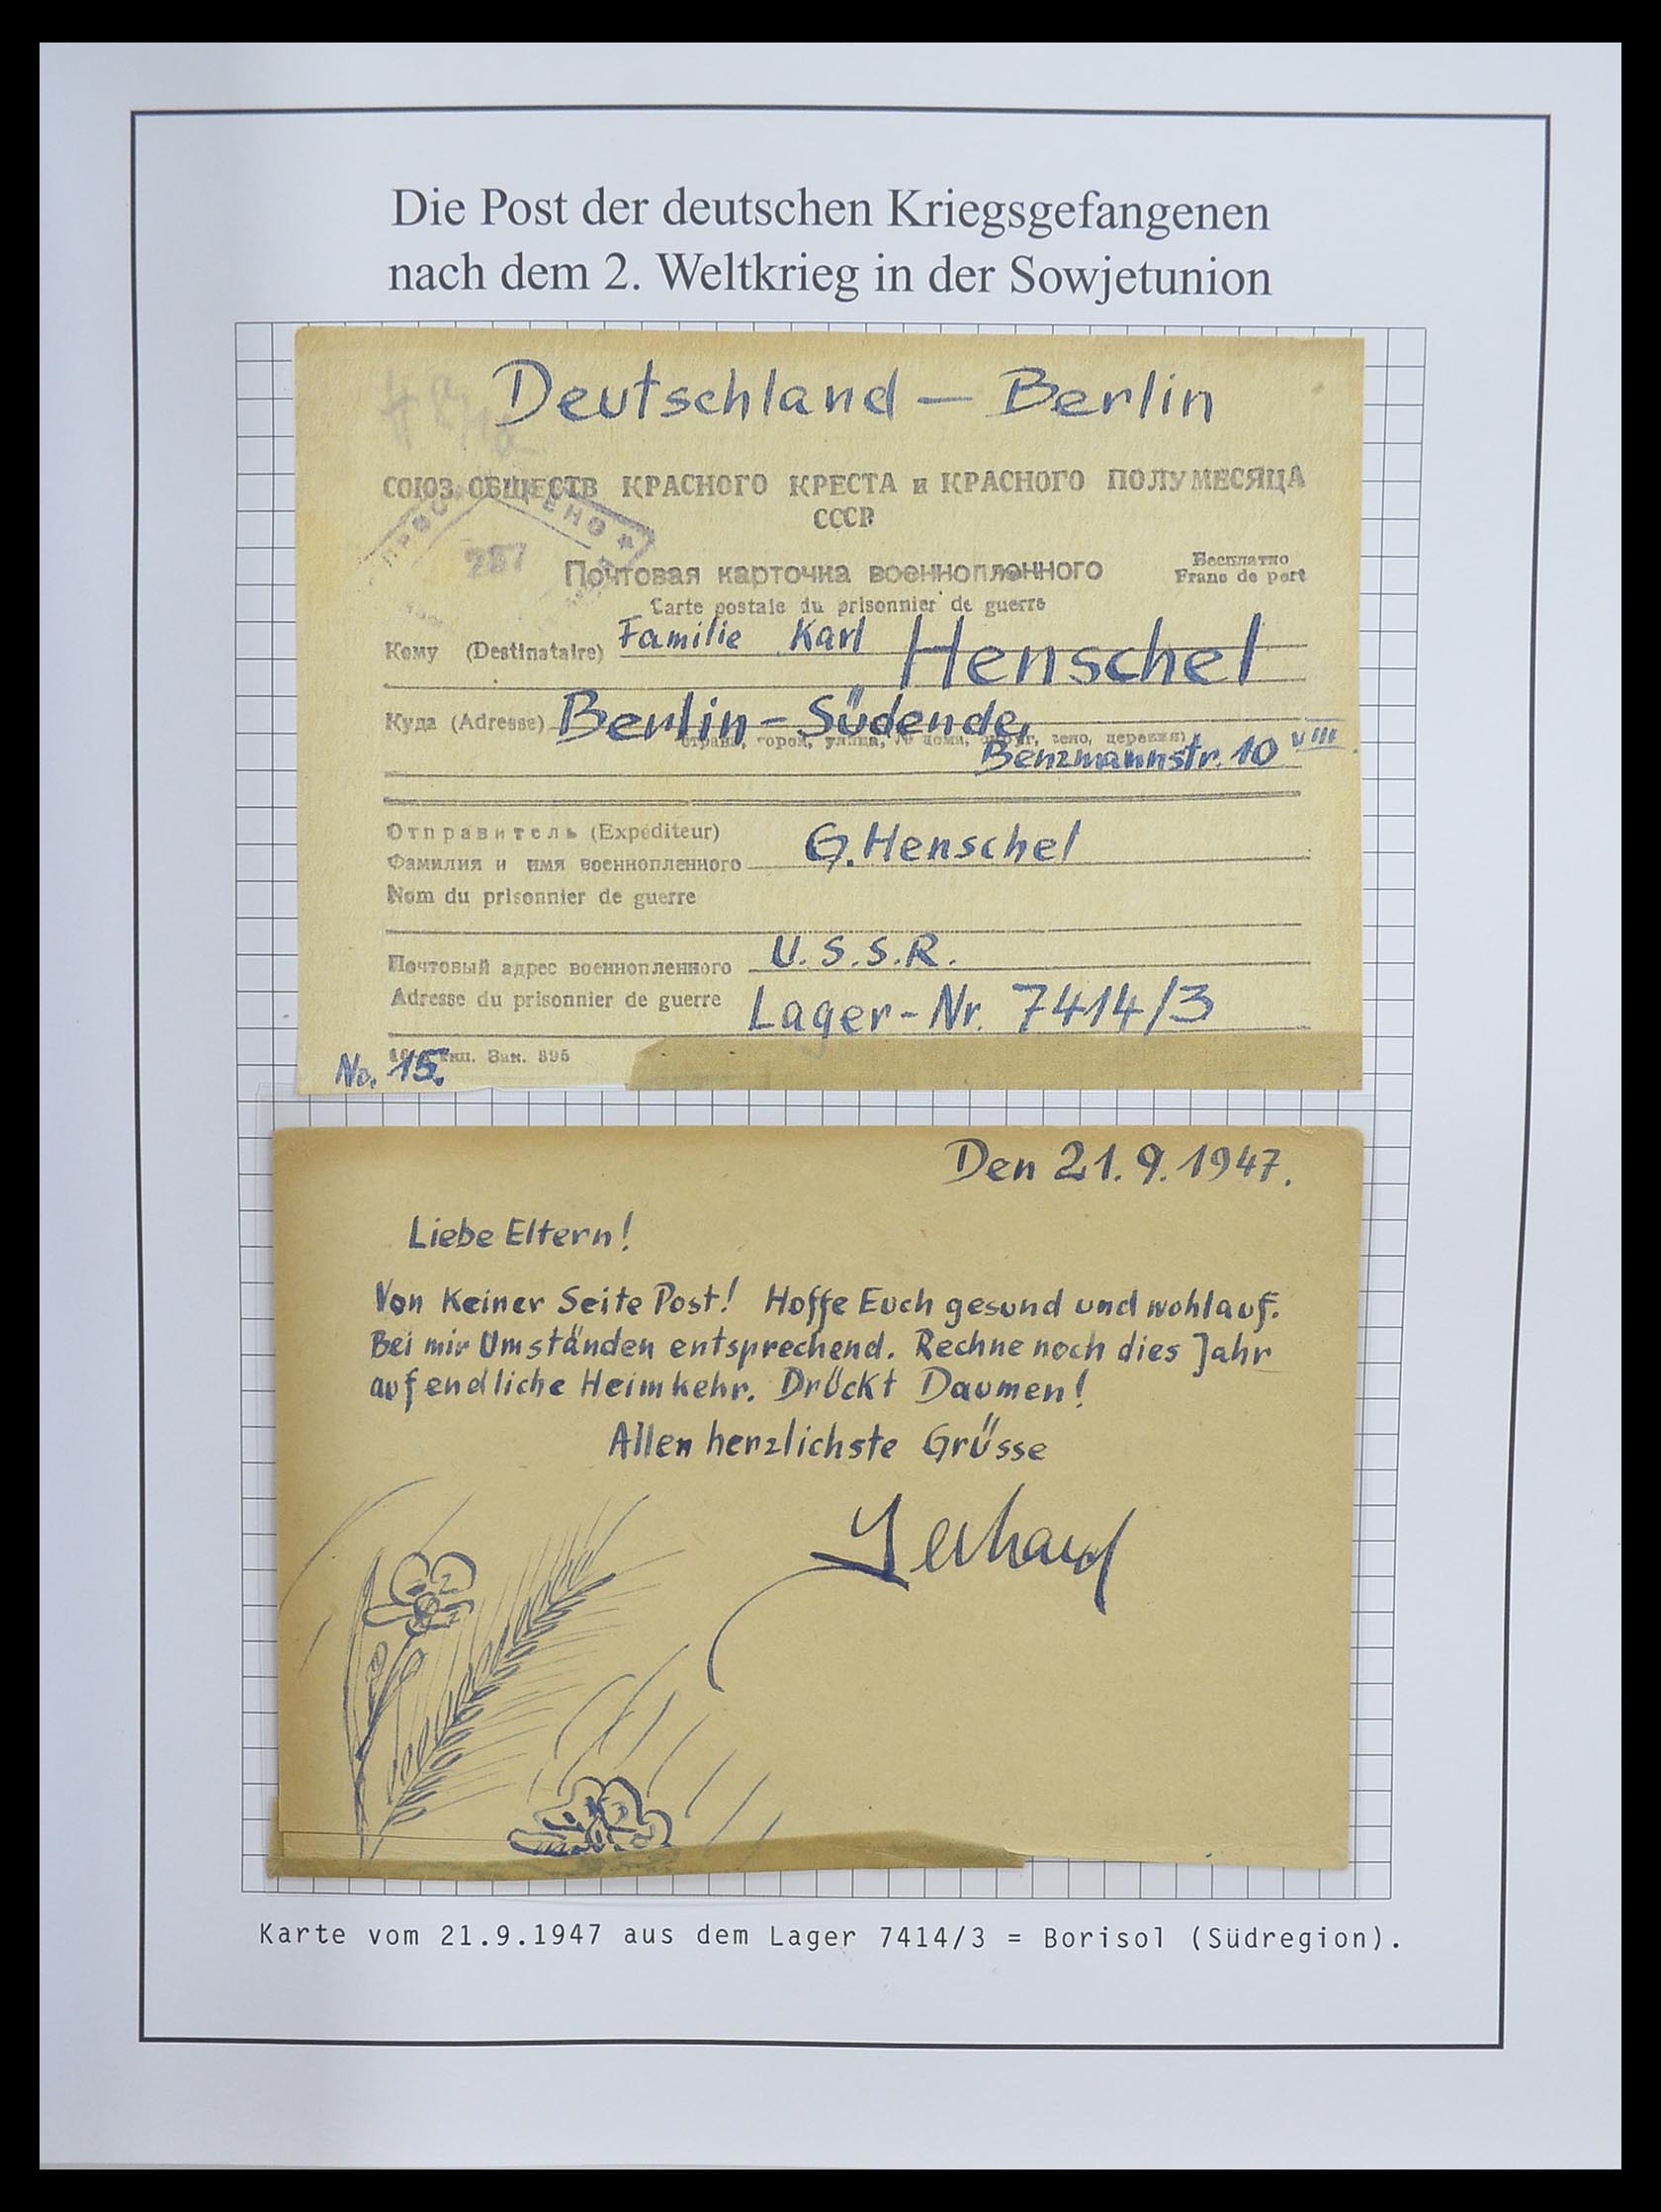 Die Post der deutschen Kriegsgefangenen
nach dem 2. Weltkrieg in der Sowjetunion
Deutschland – Berlin
СОЮЗ ОБЩЕСТВ КРАСНОГО КРЕСТА и КРАСНОГО ПОЛУМЕСЯЦА
СССР
287
Почтовая карточка военнопленного
Бесплатно
Franc de port
Carte postale du prisonnier de guerre
Кому (Destinataire) Familie Karl Henschel
Куда (Adresse) Berlin-Südende,
страна, город, улица, № дома, округ, село, деревня)
Benzmannstr. 10 VIII
Отправитель (Expéditeur)
Фамилия и имя военнопленного G. Henschel
Nom du prisonnier de guerre
Почтовый адрес военнопленного U.S.S.R.
Adresse du prisonnier de guerre Lager-Nr. 7414/3
тип. Зак. 395
No. 15.
Den 21.9.1947.
Liebe Eltern!
Von Keiner Seite Post! Hoffe Euch gesund und wohlauf.
Bei mir Umständen entsprechend. Rechne noch dies Jahr
auf endliche Heimkehr. Drückt Daumen!
Allen herzlichste Grüsse
Gerhard
Karte vom 21.9.1947 aus dem Lager 7414/3 = Borisol (Südregion).